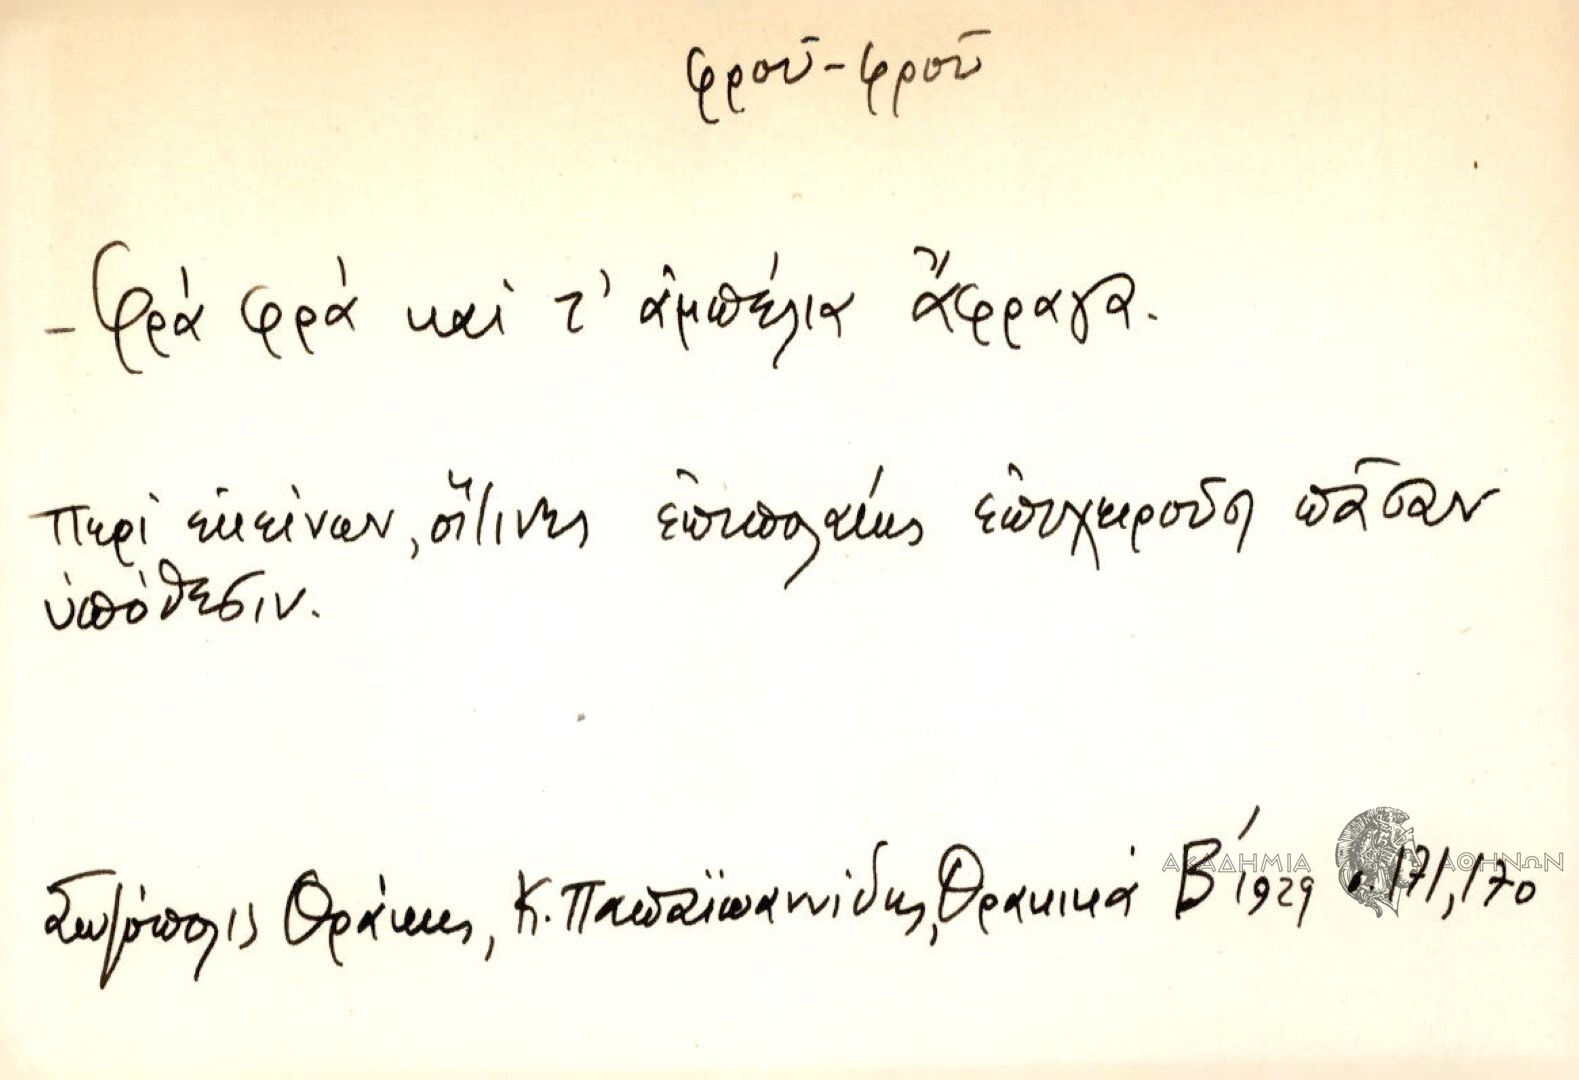 φροῦ-φροῦ
- Φρά φρά καὶ τ' ἀμπέλια ἄφραγα.
Περὶ ἐκείνων, οἵτινες ἐπιπολαίως ἐπιχειροῦσι πᾶσαν
ὑπόθεσιν.
Σωζόπολις Θράκης, Κ. Παπαϊωαννίδης, Θρακικά Β΄ 1929 σ. 171, 170
ΑΚΑΔΗΜΙΑ ΑΘΗΝΩΝ